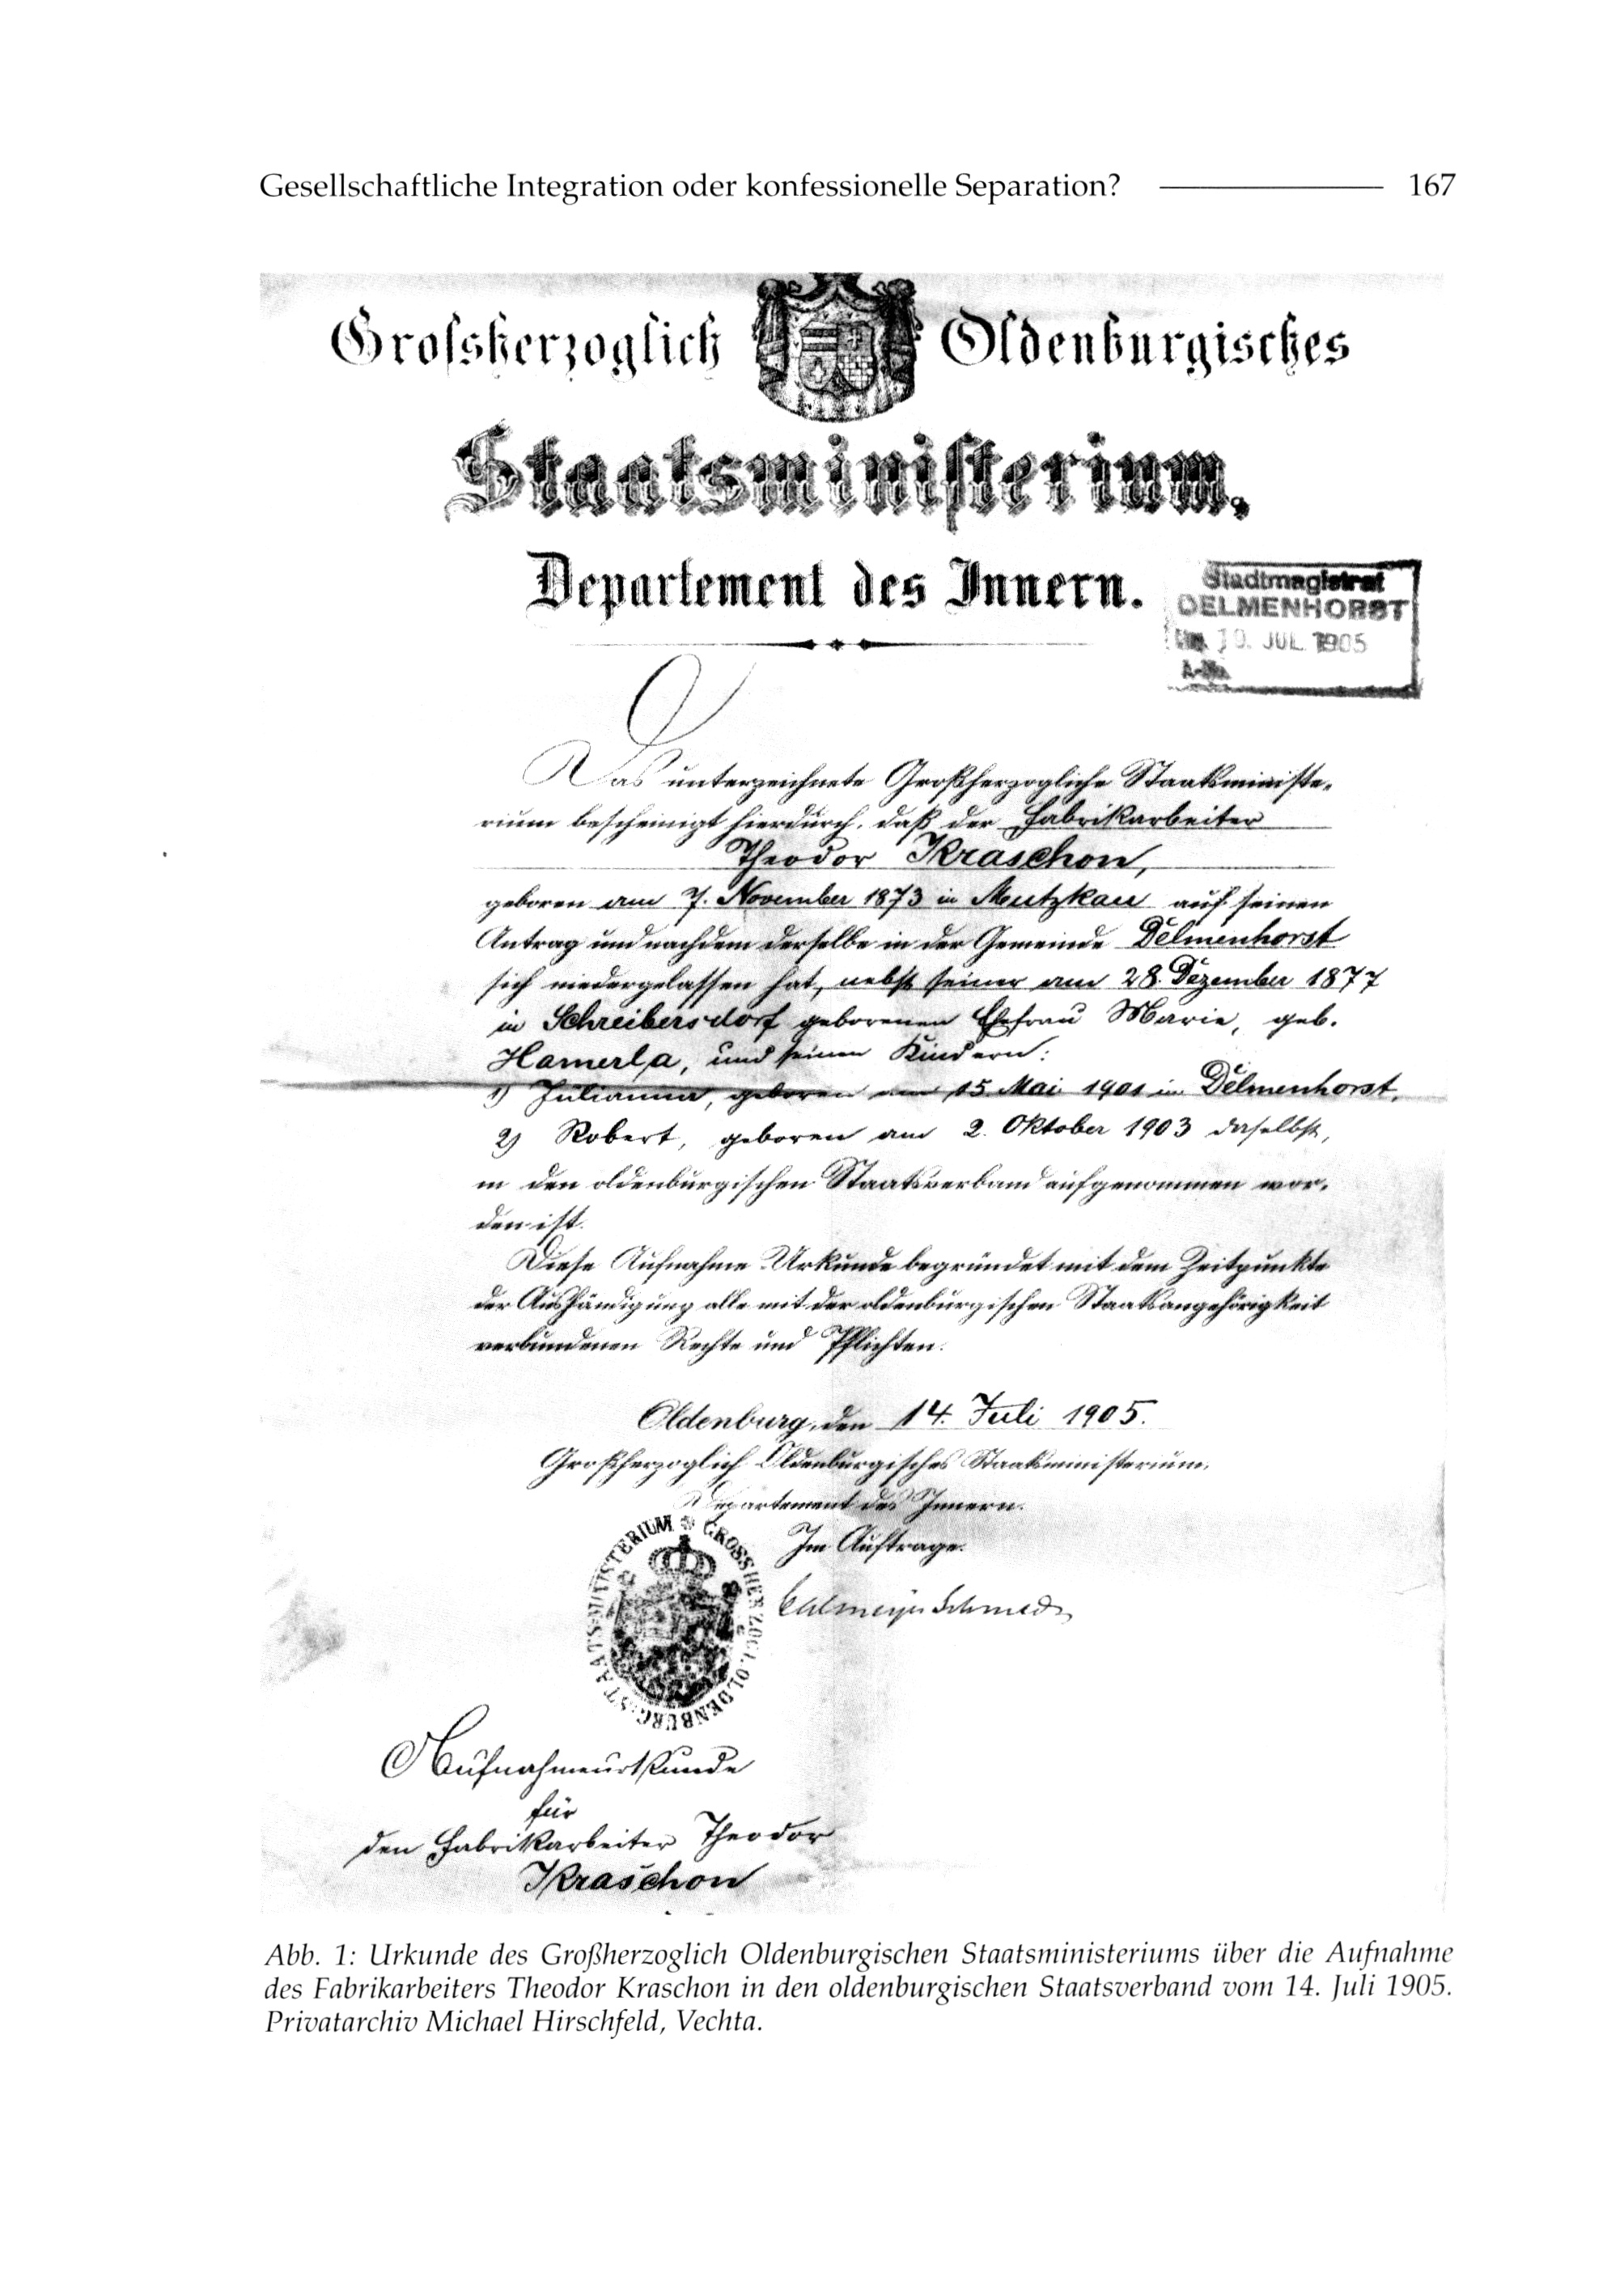 Gesellschaftliche Integration oder konfessionelle Separation? 167
Grossherzoglich Oldenburgisches
Staatsministerium,
Departement des Innern.
Stadtmagistrat
DELMENHORST
JUL. 1905
A-No.
Das unterzeichnete Großherzogliche Staatsministe-
rium bescheinigt hierdurch, daß der Fabrikarbeiter
Theodor Kraschon,
geboren am 7. November 1873 in Mutzkau auf seinen
Antrag und nachdem derselbe in der Gemeinde Delmenhorst
sich niedergelassen hat, nebst seiner am 28. Dezember 1877
in Schreibersdorf geborenen Ehefrau Marie, geb.
Hamerla, und seinen Kindern:
1) Julianna, geboren am 15 Mai 1901 in Delmenhorst,
2) Robert, geboren am 2. Oktober 1903 daselbst,
in den oldenburgischen Staatsverband aufgenommen wor-
den ist.
Diese Aufnahme Urkunde begründet mit dem Zeitpunkte
der Aushändigung alle mit der oldenburgischen Staatsangehörigkeit
verbundenen Rechte und Pflichten.
Oldenburg, den 14. Juli 1905.
Großherzoglich Oldenburgisches Staatsministerium,
Departement des Innern.
Im Auftrage.
STAATSMINISTERIUM * GROSSHERZOGL. OLDENBURG.
Aufnahmeurkunde
für
den Fabrikarbeiter Theodor
Kraschon
Abb. 1: Urkunde des Großherzoglich Oldenburgischen Staatsministeriums über die Aufnahme
des Fabrikarbeiters Theodor Kraschon in den oldenburgischen Staatsverband vom 14. Juli 1905.
Privatarchiv Michael Hirschfeld, Vechta.